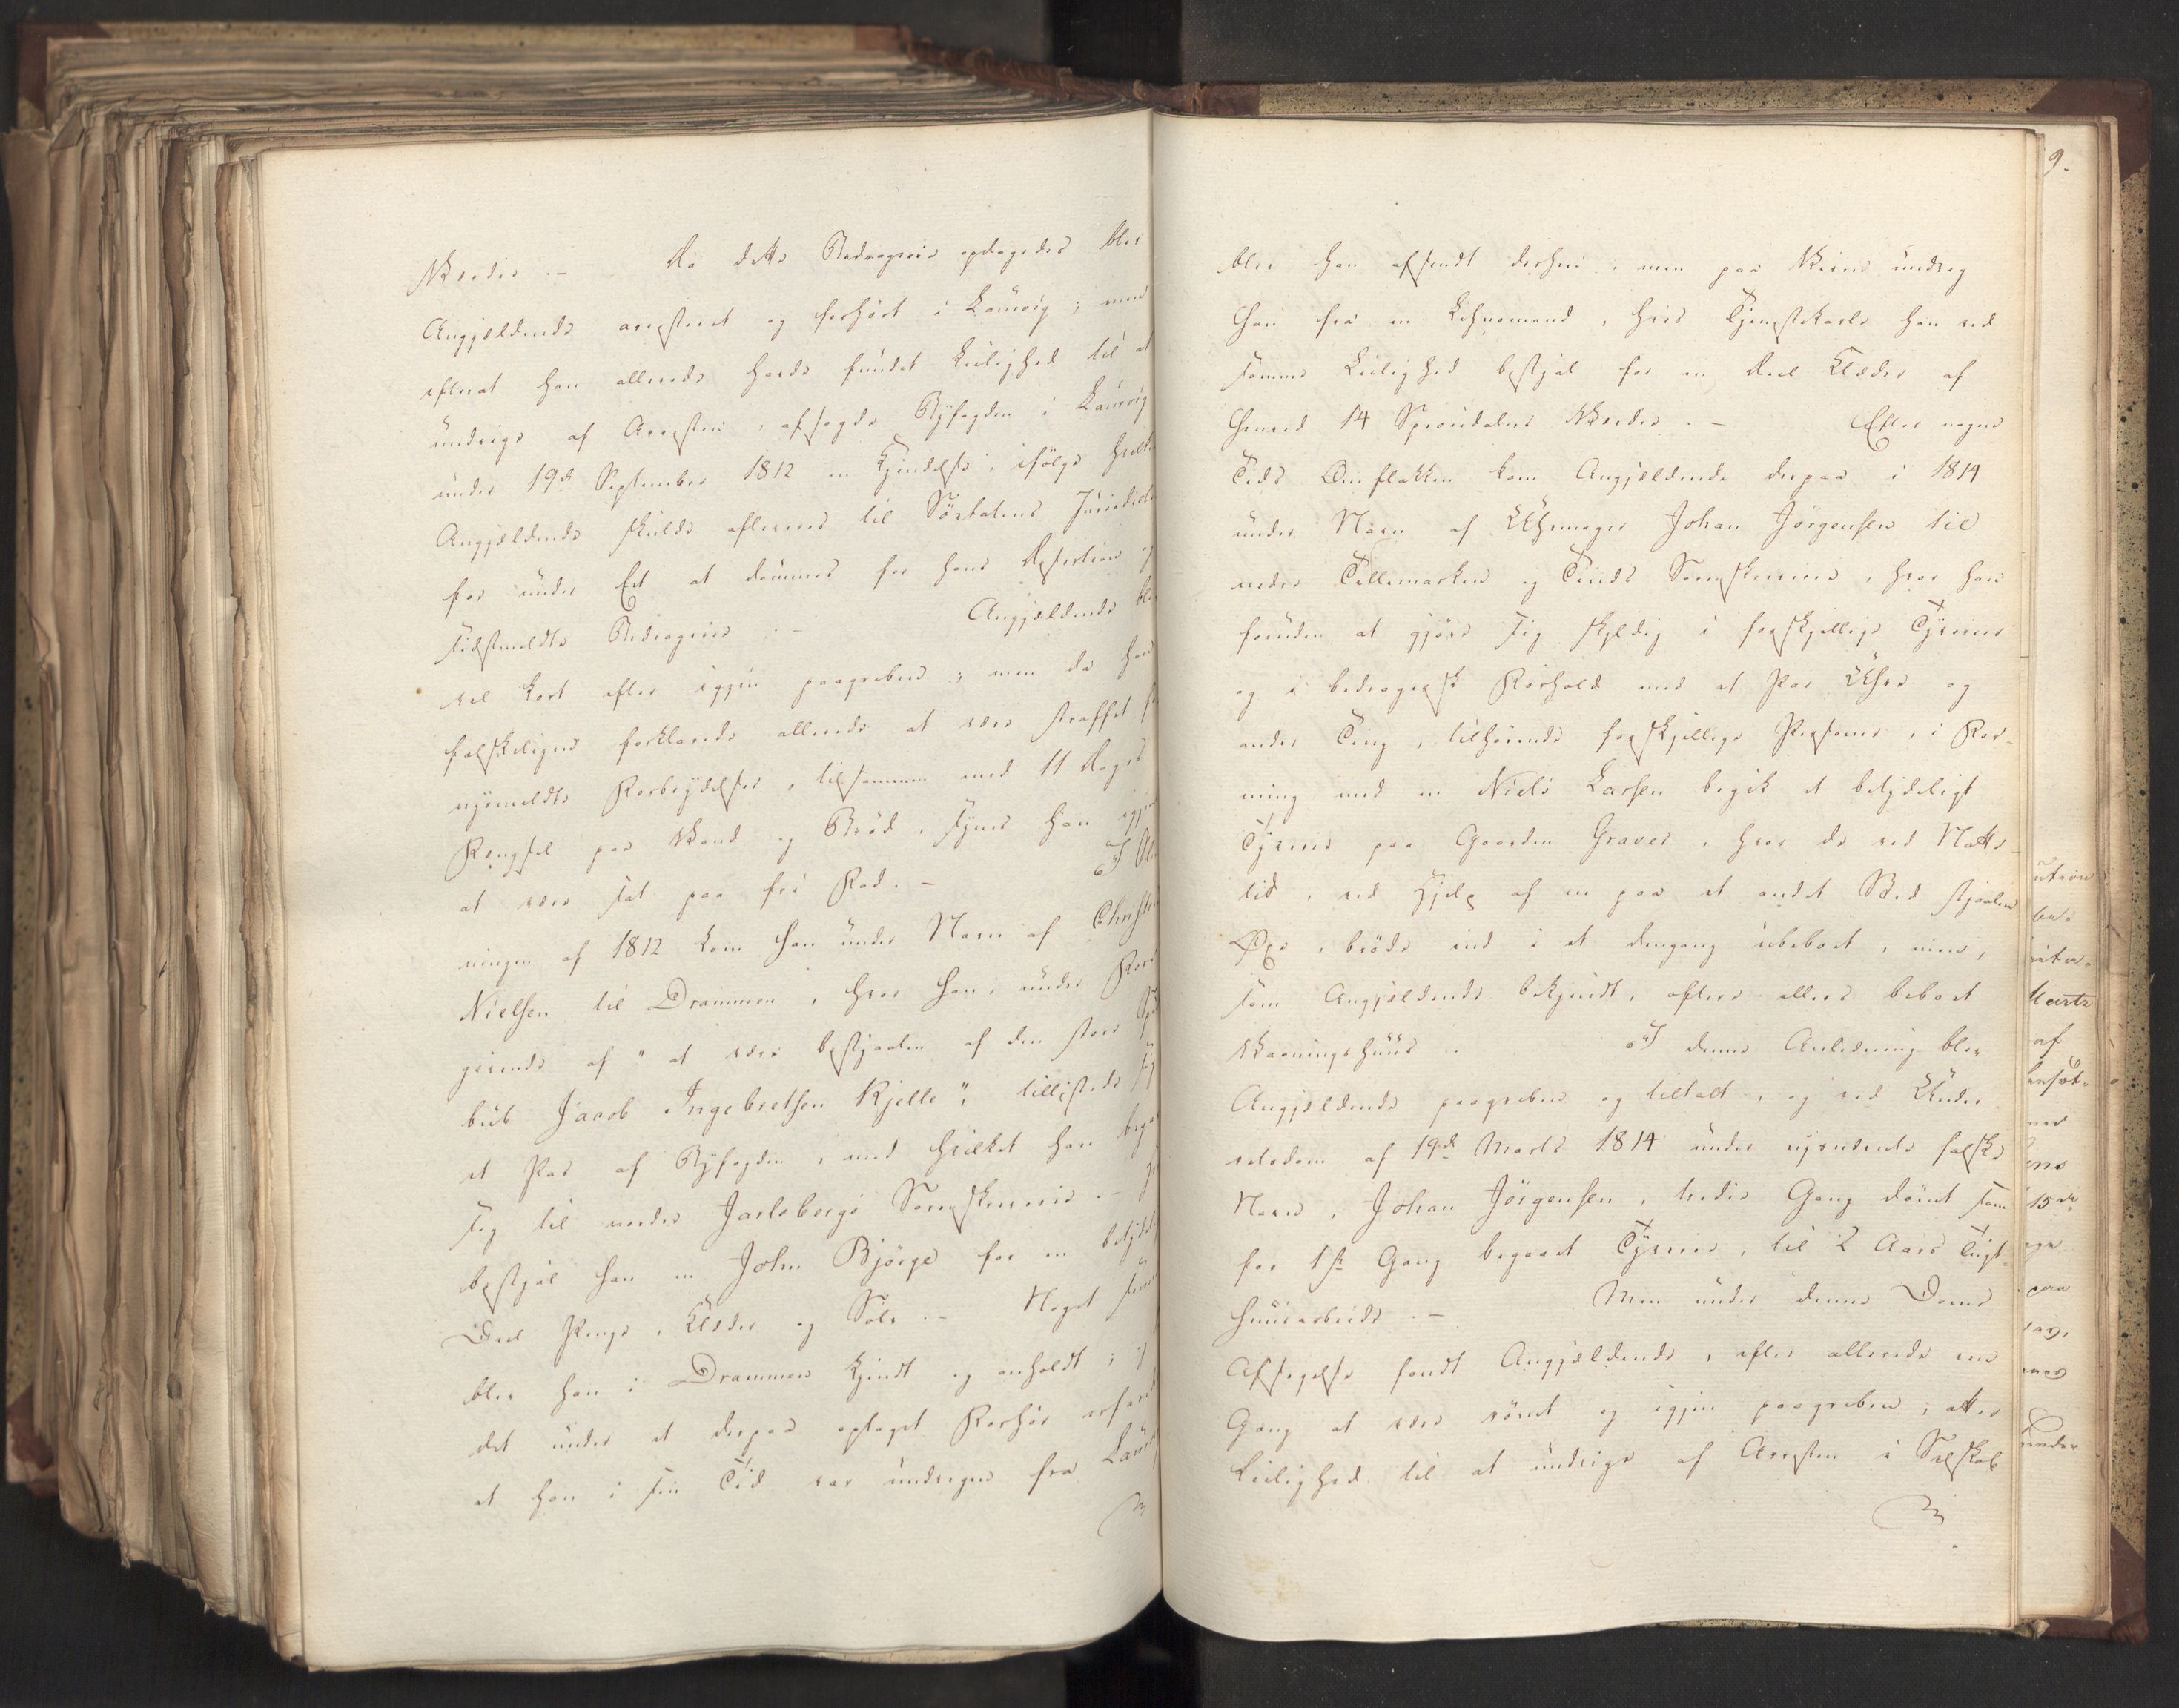 Værdie. — Da dette Bedragerie opdagedes blev
Angjældende arresteret og forhört i Laurvig; men
efterat han allerede havde fundet Leilighed til at
undvige af Arresten, afsagde Byfogden i Laurvig
under 19de September 1812 en Kjendelse, ifölge hvilken
Angjældende skulde afleveres til Söetatens Jurisdict
for under Et at dömmes for hans Desertion og
sidstmeldte Bedragerie. — Angjældende blev
vel kort efter igjen paagreben; men da han
falskeligen forklarede allerede at være straffet for
nysmeldte Forbrydelser, tilsammen med 11 Dages
Fængsel paa Vand og Bröd, synes han igjen
at være sat paa frie Fod. — I Slu
ningen af 1812 kom han under Navn af Christen
Nielsen til Drammen, hvor han, under Fore
givende af "at være bestjaalen af den store
bub Jacob Ingebretsen Kjelle", tillistede sig
et Pas af Byfogden, med hvilket han begav
sig til nordre Jarlsbergs Sorenskriverie. —
bestjal han en John Bjørge for en betydelig
Deel Penge, Klæder og Sölv. — Noget senere
blev han i Drammen kjendt og anholdt; og
det under et derpaa optaget Forhör erfaret
at han i sin Tid var undvegen fra Laurvig
blev han afsendt derhen, men paa Veien undveg
han fra en Lehnsmand, hvis Tjenestekarle han ved
samme Leilighed bestjal for en Deel Klæder af
henved 14 Speciedalers Værdie. — Efter nogen
Tids Omflakken kom Angjældende derpaa i 1814
under Navn af Uhrmager Johan Jörgensen til
nedre Tellemarken og Tinds Sorenskriverie, hvor han
foruden at gjöre sig skyldig i forskjellige Tyverier
og i bedragersk Forhold med et Par Uhre og
andre Ting, tilhörende forskjellige Personer, i For-
ening med en Niels Larsen begik et betydeligt
Tyverie paa Gaarden Graver, hvor de ved Natte-
tid, ved Hjelp af en paa et andet Sted stjaalen
Öxe, bröde ind i et dengang ubeboet, men,
som Angjældende bekjendt, oftere ellers beboet
Vaaningshuus. I denne Anledning blev
Angjældende paagreben og tiltalt, og ved Under-
retsdom af 19de Marts 1814 under nysnævnte falske
Navn, Johan Jörgensen, tredie Gang dömt som
for 1ste Gang begaaet Tyverie, til 2 Aars Tugt-
huusarbeide. — Men under denne Doms
Afsigelse fandt Angjældende, efter allerede een
Gang at være römt og igjen paagreben, atter
Leilighed til at undvige af Arresten i Selskab
9.
af
15de
under